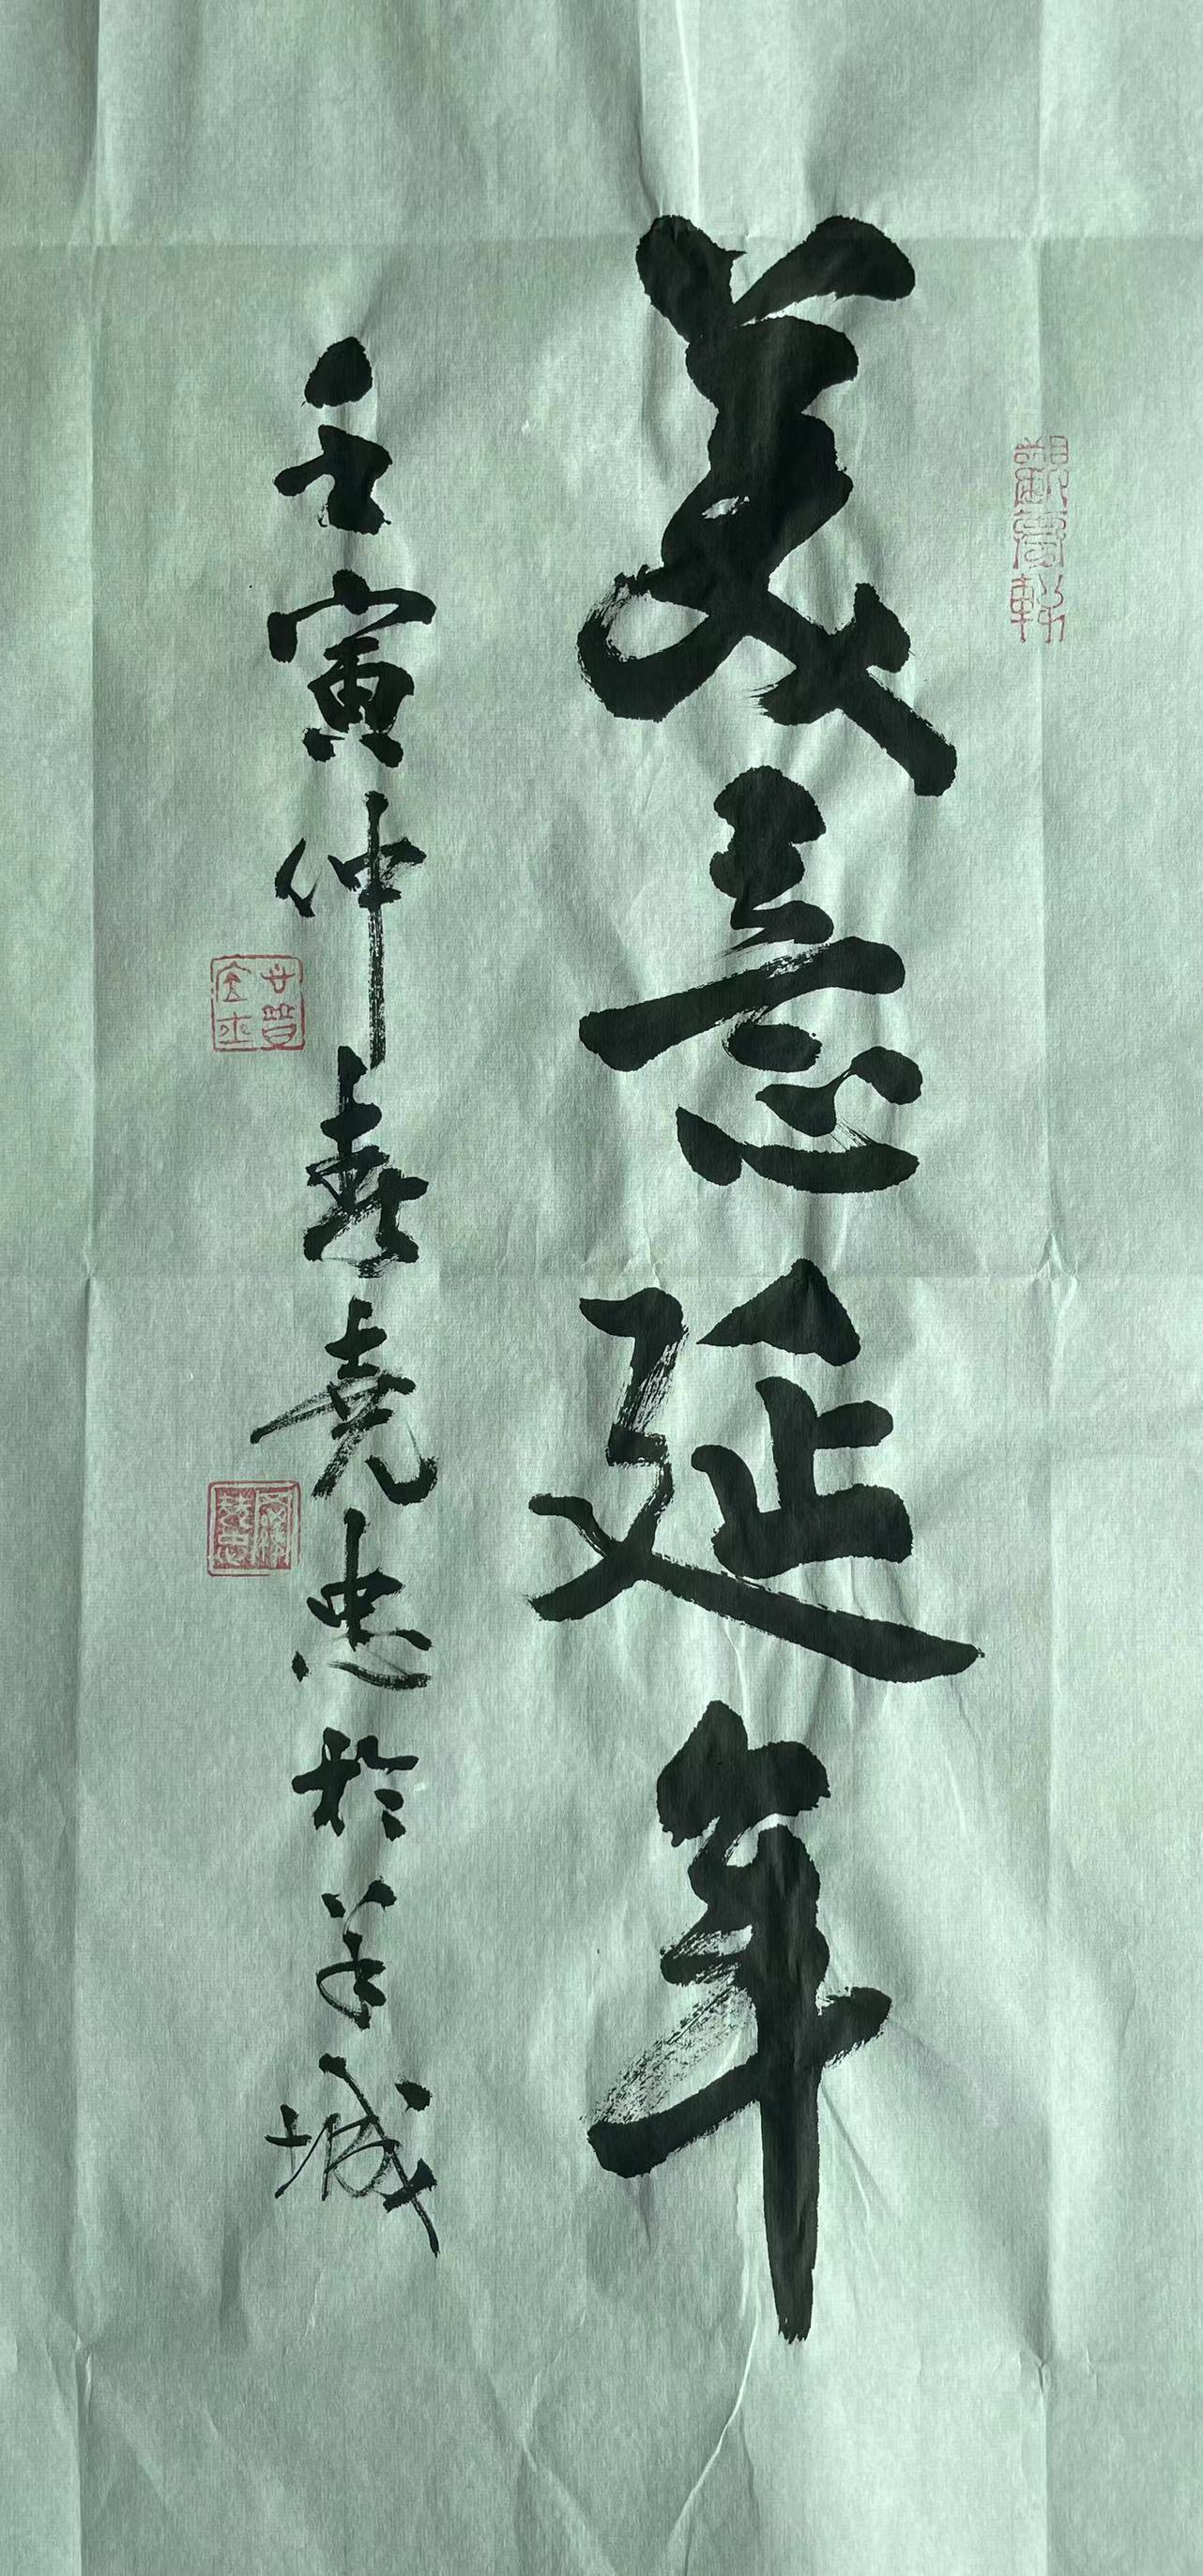 美意延年
壬寅仲春尧忠於羊城